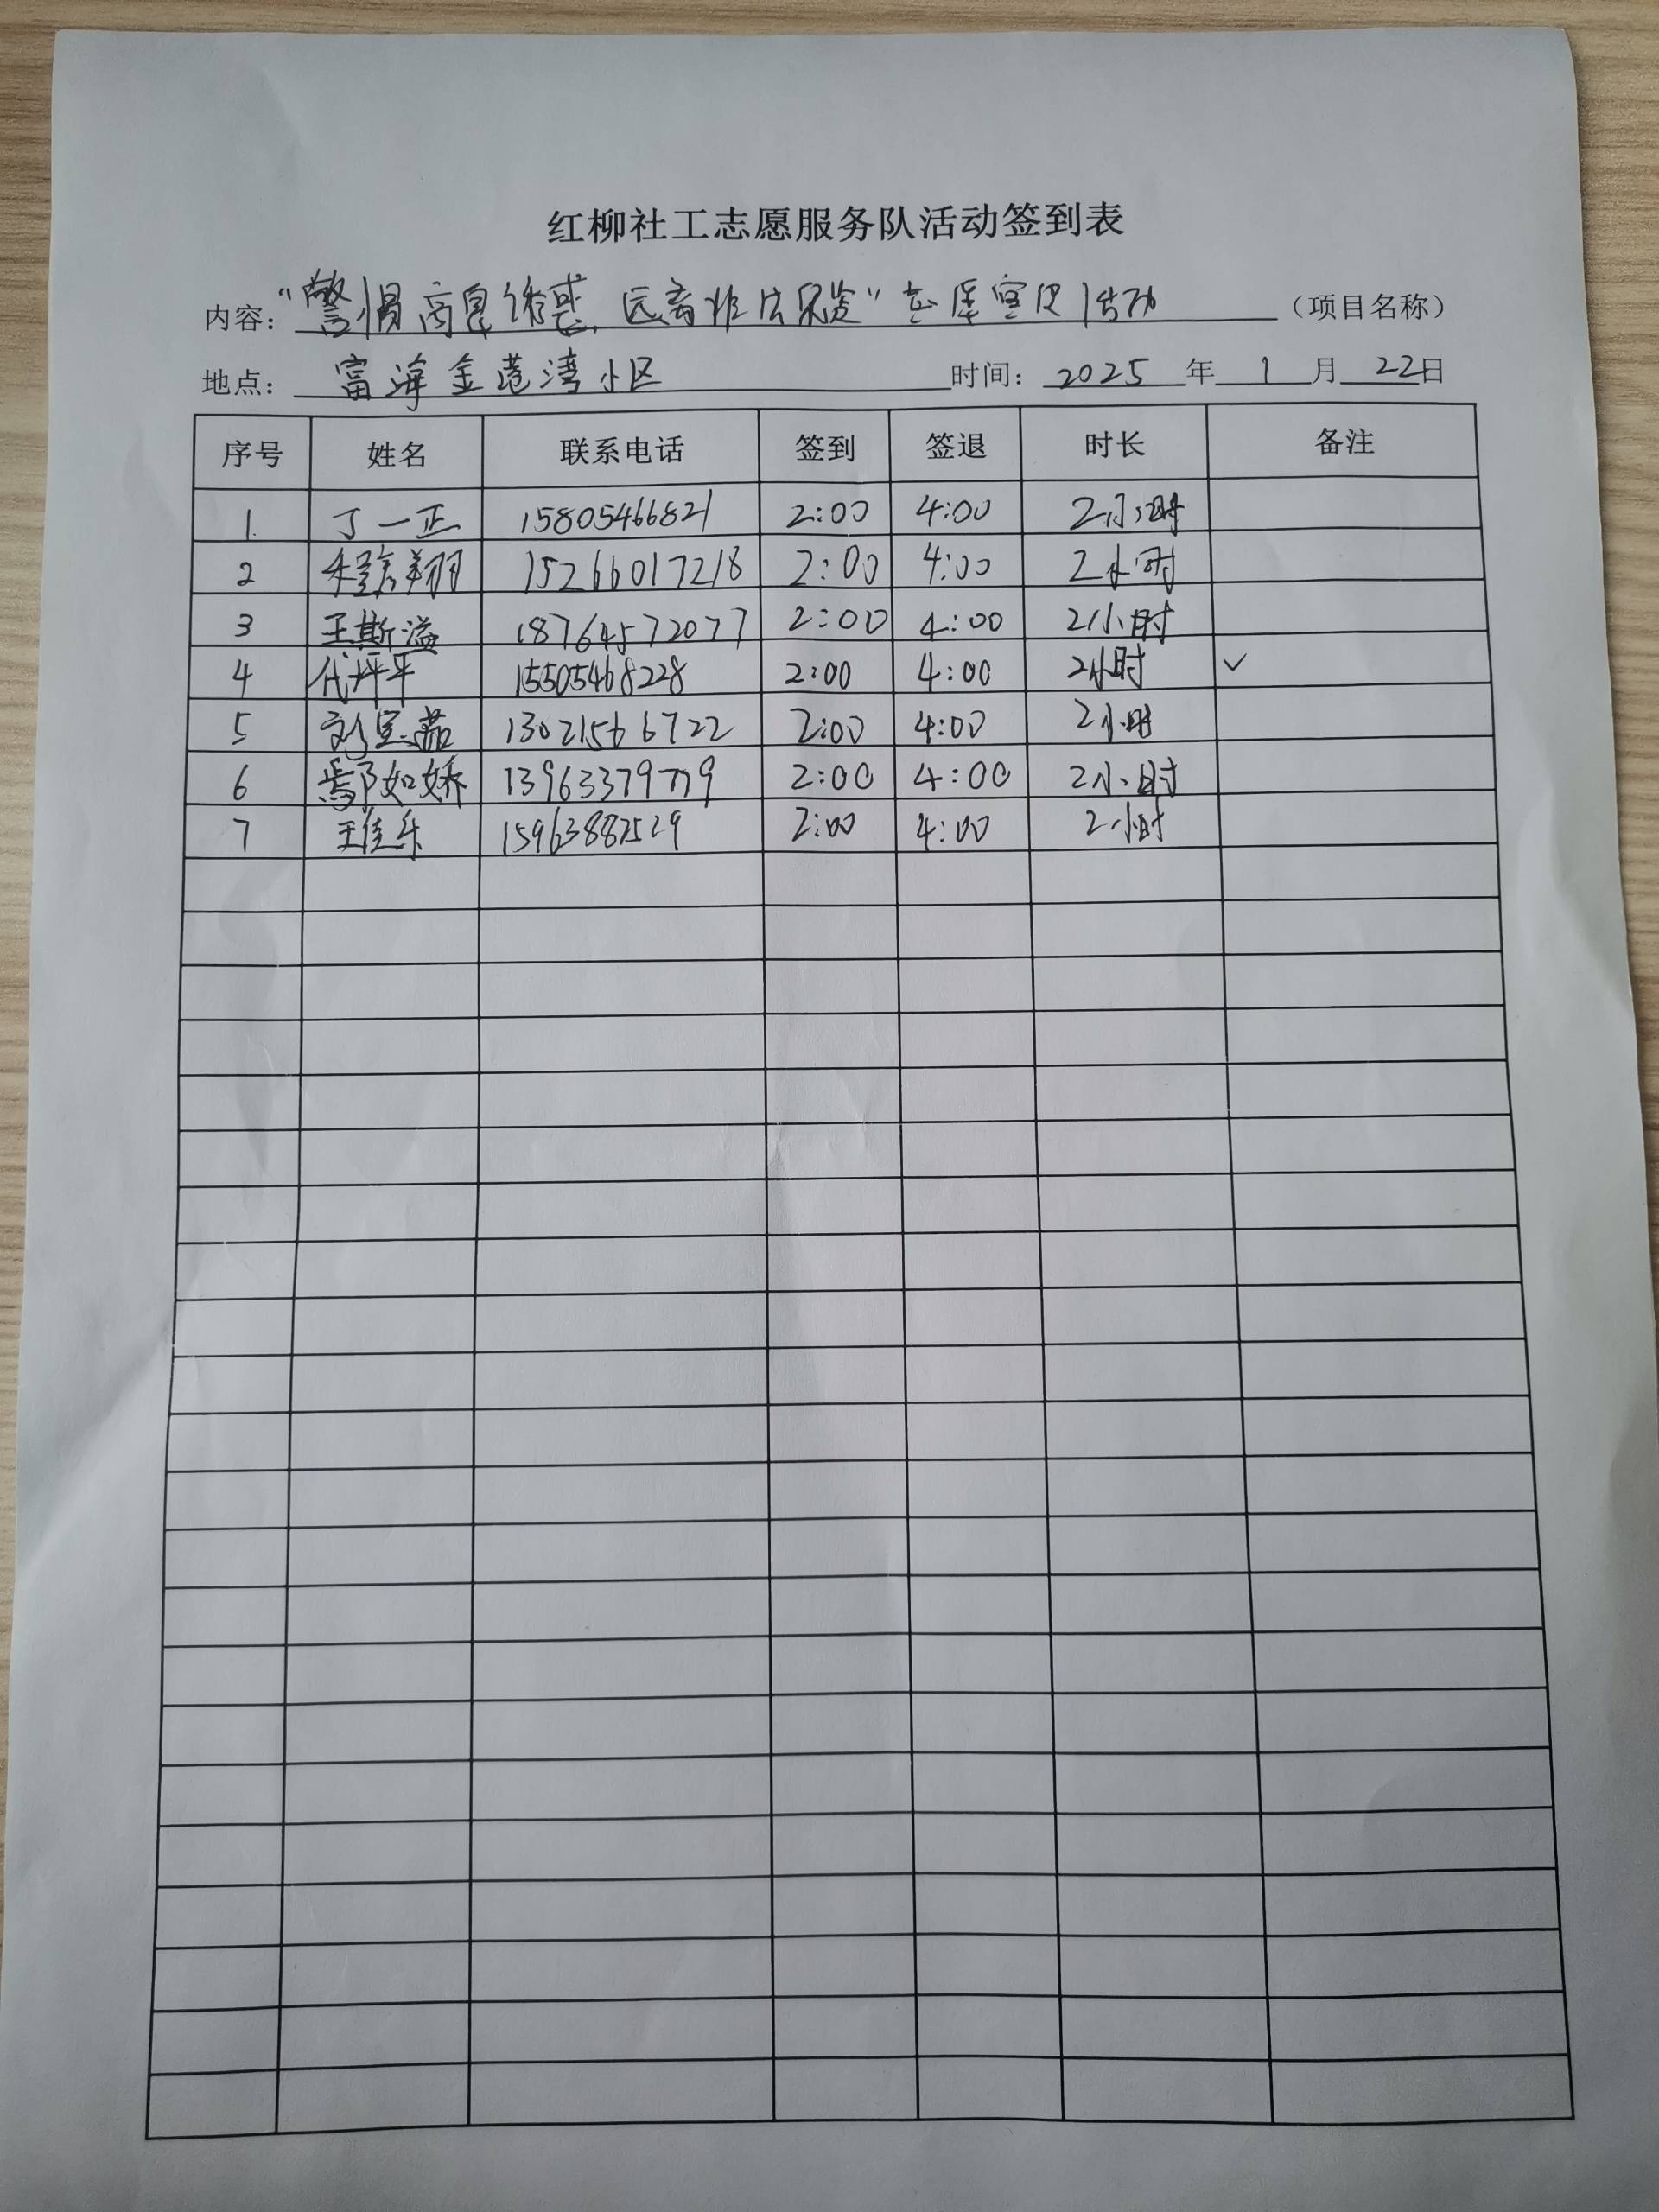 红柳社工志愿服务队活动签到表
内容："警惕高息诱惑，远离非法集资"志愿宣传活动（项目名称）
地点：富海金港湾小区 时间：2025年1月22日
序号 姓名 联系电话 签到 签退 时长 备注
1. 丁一正 15805466821 2:00 4:00 2小时
2 翔 15266017218 2:00 4:00 2小时
3 王斯溢 18764572077 2:00 4:00 2小时
4 代坪平 15505468228 2:00 4:00 2小时 ✓
5 刘茹 13021566722 2:00 4:00 2小时
6 鄢如娇 13963379779 2:00 4:00 2小时
7 王佳乐 15963882529 2:00 4:00 2小时